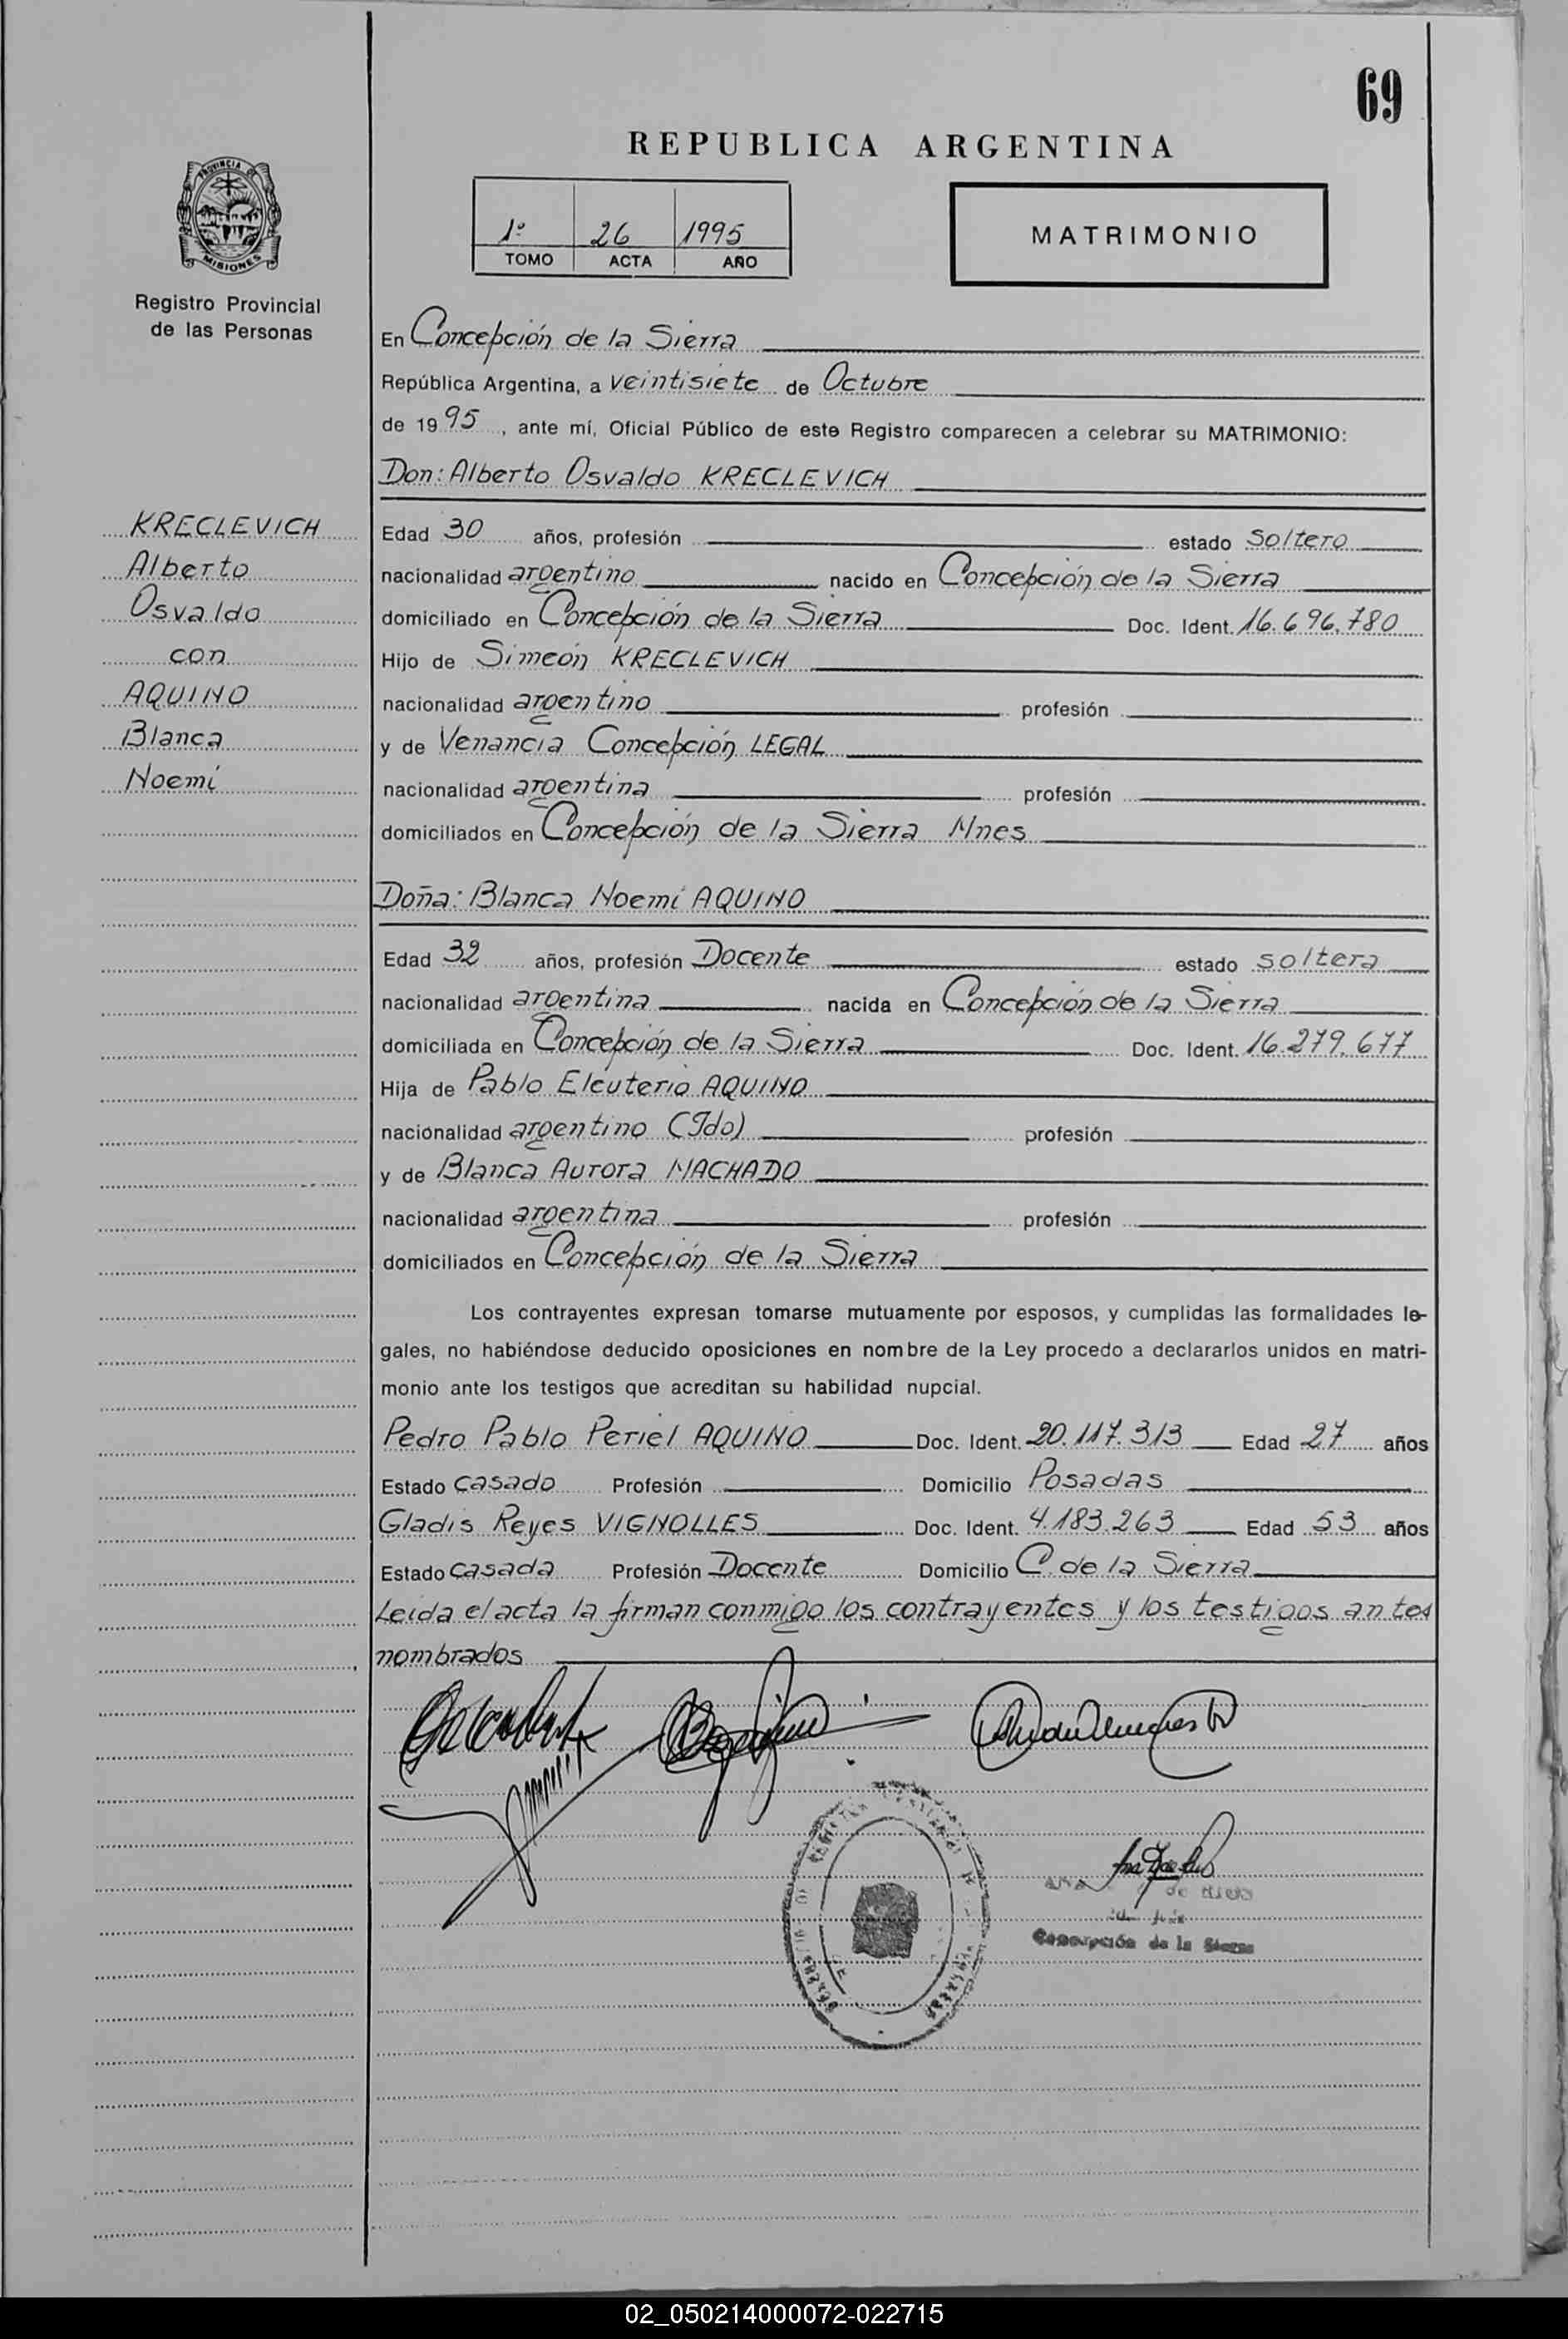 69
REPUBLICA ARGENTINA
PROVINCIA DE
MISIONES
Registro Provincial
de las Personas
1º 26 1995
TOMO ACTA AÑO
MATRIMONIO
En Concepción de la Sierra
República Argentina, a veintisiete de Octubre
de 1995, ante mí, Oficial Público de este Registro comparecen a celebrar su MATRIMONIO:
Don: Alberto Osvaldo KRECLEVICH
KRECLEVICH
Alberto
Osvaldo
con
AQUINO
Blanca
Noemí
Edad 30 años, profesión estado soltero
nacionalidad argentino nacido en Concepción de la Sierra
domiciliado en Concepción de la Sierra Doc. Ident. 16.696.780
Hijo de Simeón KRECLEVICH
nacionalidad argentino profesión
y de Venancia Concepción LEGAL
nacionalidad argentina profesión
domiciliados en Concepción de la Sierra Mnes
Doña: Blanca Noemí AQUINO
Edad 32 años, profesión Docente estado soltera
nacionalidad argentina nacida en Concepción de la Sierra
domiciliada en Concepción de la Sierra Doc. Ident. 16.279.677
Hija de Pablo Eleuterio AQUINO
nacionalidad argentino (Fdo) profesión
y de Blanca Aurora MACHADO
nacionalidad argentina profesión
domiciliados en Concepción de la Sierra
Los contrayentes expresan tomarse mutuamente por esposos, y cumplidas las formalidades le-
gales, no habiéndose deducido oposiciones en nombre de la Ley procedo a declararlos unidos en matri-
monio ante los testigos que acreditan su habilidad nupcial.
Pedro Pablo Periel AQUINO Doc. Ident. 20.117.313 Edad 27 años
Estado casado Profesión Domicilio Posadas
Gladis Reyes VIGNOLLES Doc. Ident. 4.183.263 Edad 53 años
Estado casada Profesión Docente Domicilio C. de la Sierra
Leída el acta la firman conmigo los contrayentes y los testigos antes
nombrados
Concepción de la Sierra
02_050214000072-022715